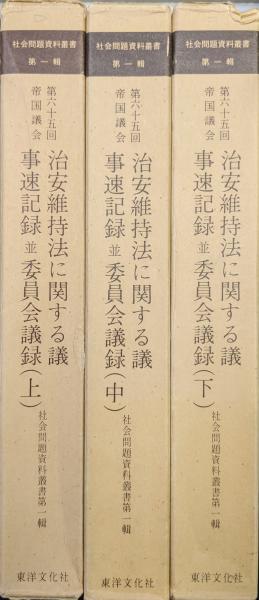 社会問題資料叢書
第一輯
第六十五回
帝国議会
治安維持法に関する議
事速記録並委員会議録(上)
社会問題資料叢書第一輯
東洋文化社
社会問題資料叢書
第一輯
第六十五回
帝国議会
治安維持法に関する議
事速記録並委員会議録(中)
社会問題資料叢書第一輯
東洋文化社
社会問題資料叢書
第一輯
第六十五回
帝国議会
治安維持法に関する議
事速記録並委員会議録(下)
社会問題資料叢書第一輯
東洋文化社